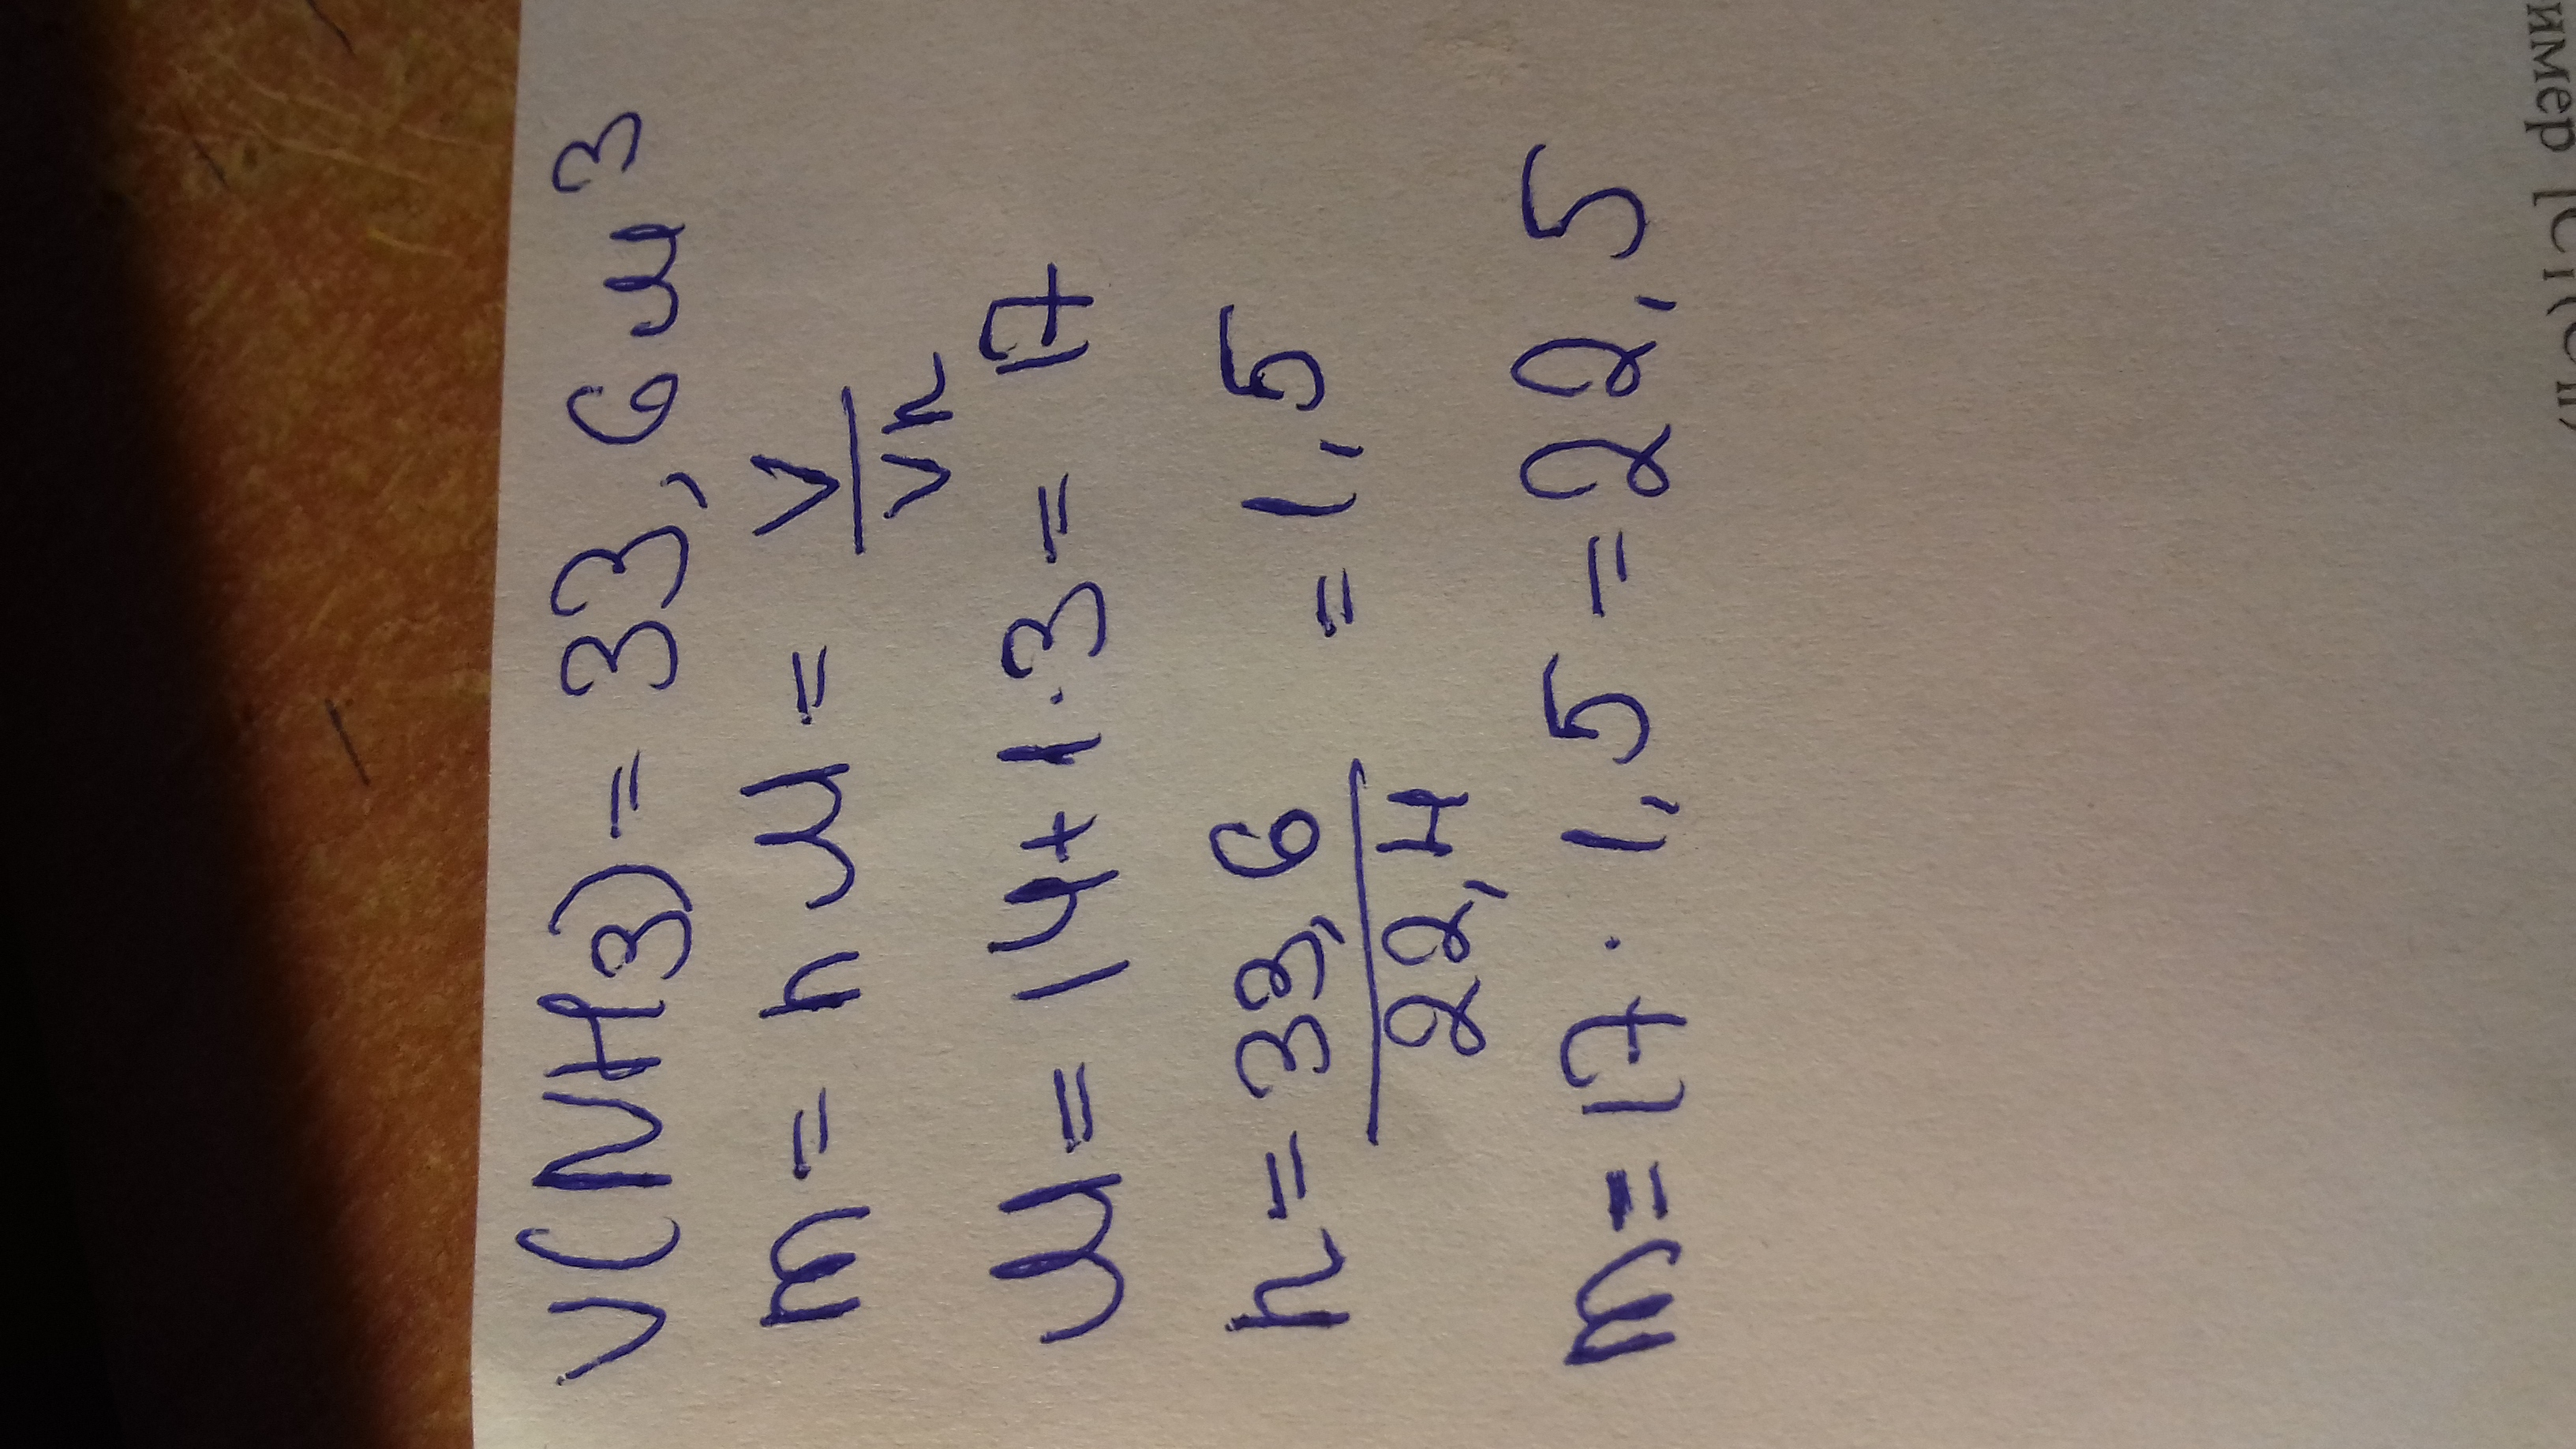 V(NH3) = 33,6 м³
m = n M = V/Vn
M = 14+1·3 = 17
n = 33,6/22,4 = 1,5
m = 17 · 1,5 = 22,5
имер